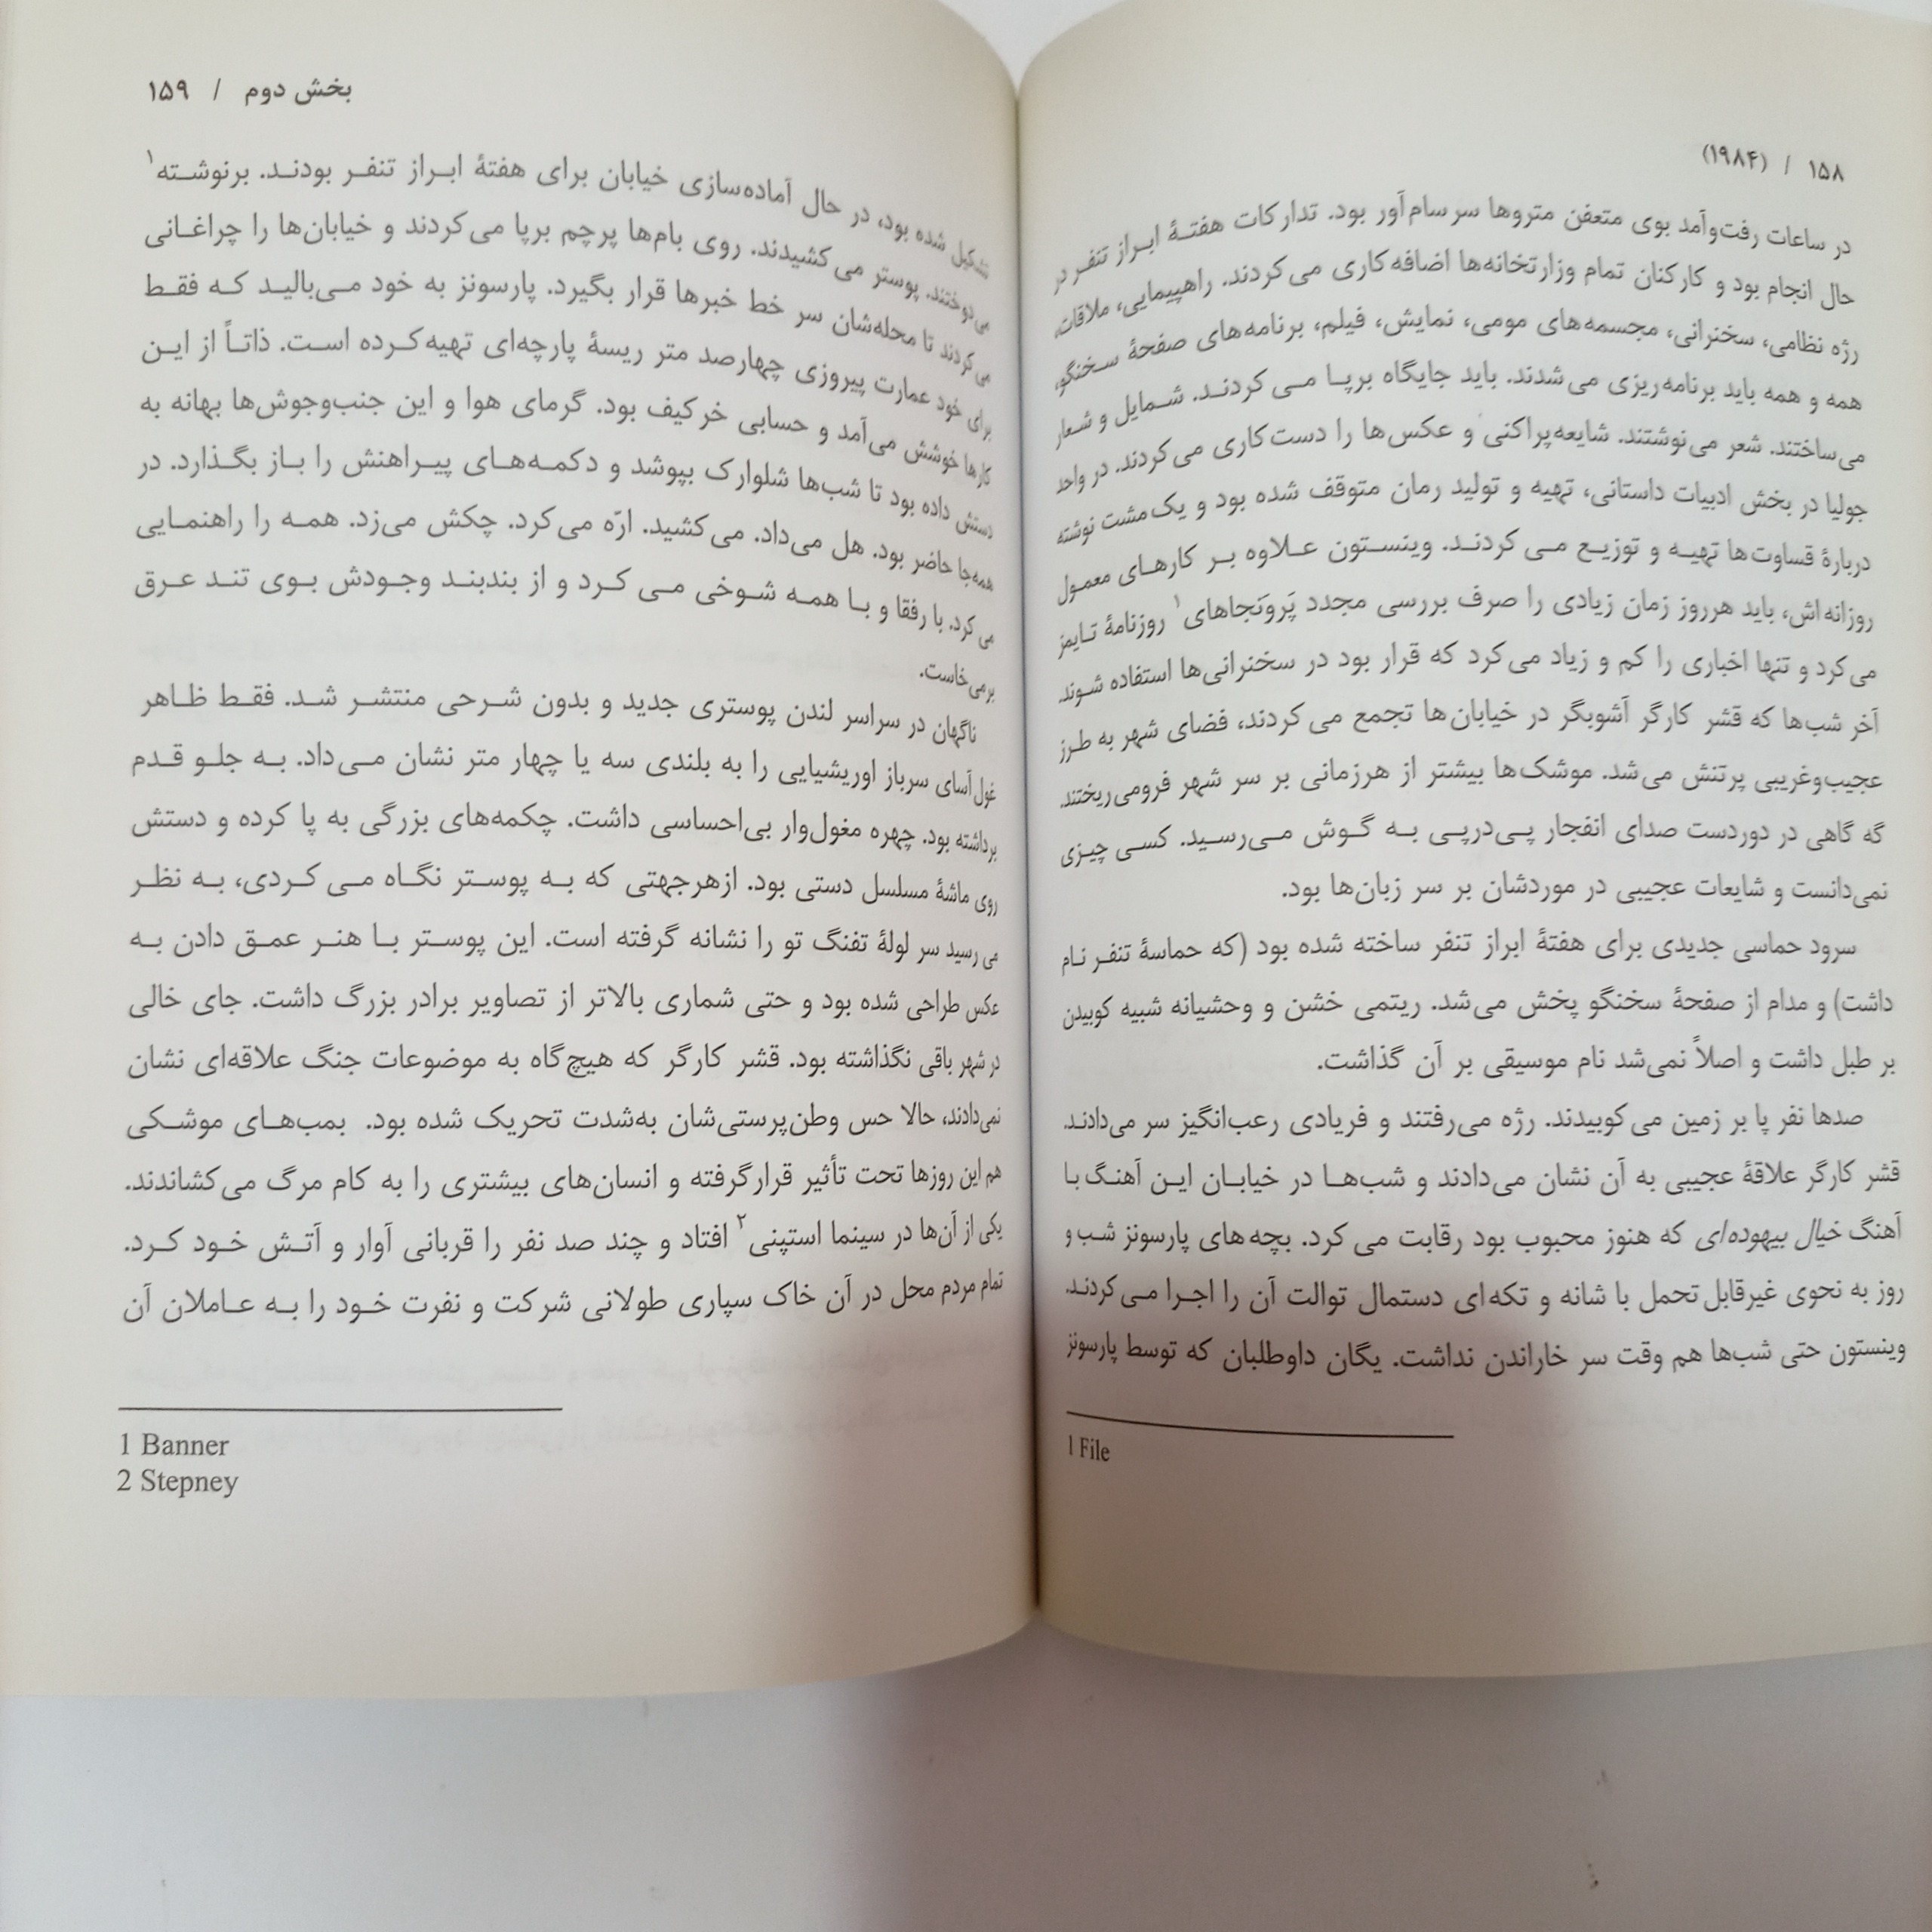 ۱۵۸ / (۱۹۸۴)
در ساعات رفت‌وآمد بوی متعفن متروها سرسام‌آور بود. تدارکات هفتهٔ ابراز تنفر در
حال انجام بود و کارکنان تمام وزارتخانه‌ها اضافه‌کاری می‌کردند. راهپیمایی، ملاقات،
رژه نظامی، سخنرانی، مجسمه‌های مومی، نمایش، فیلم، برنامه‌های صفحهٔ سخنگو،
همه و همه باید برنامه‌ریزی می‌شدند. باید جایگاه برپا می‌کردند. شمایل و شعار
می‌ساختند. شعر می‌نوشتند. شایعه‌پراکنی و عکس‌ها را دست‌کاری می‌کردند. در واحد
جولیا در بخش ادبیات داستانی، تهیه و تولید رمان متوقف شده بود و یک مشت نوشته
دربارهٔ قساوت‌ها تهیه و توزیع می‌کردند. وینستون علاوه بر کارهای معمول
روزانه‌اش، باید هرروز زمان زیادی را صرف بررسی مجدد پَروَنجاهای۱ روزنامهٔ تایمز
می‌کرد و تنها اخباری را کم و زیاد می‌کرد که قرار بود در سخنرانی‌ها استفاده شوند.
آخر شب‌ها که قشر کارگر آشوبگر در خیابان‌ها تجمع می‌کردند، فضای شهر به طرز
عجیب‌وغریبی پرتنش می‌شد. موشک‌ها بیشتر از هرزمانی بر سر شهر فرومی‌ریختند.
گه گاهی در دوردست صدای انفجار پی‌درپی به گوش می‌رسید. کسی چیزی
نمی‌دانست و شایعات عجیبی در موردشان بر سر زبان‌ها بود.
سرود حماسی جدیدی برای هفتهٔ ابراز تنفر ساخته شده بود (که حماسهٔ تنفر نام
داشت) و مدام از صفحهٔ سخنگو پخش می‌شد. ریتمی خشن و وحشیانه شبیه کوبیدن
بر طبل داشت و اصلاً نمی‌شد نام موسیقی بر آن گذاشت.
صدها نفر پا بر زمین می‌کوبیدند. رژه می‌رفتند و فریادی رعب‌انگیز سر می‌دادند.
قشر کارگر علاقهٔ عجیبی به آن نشان می‌دادند و شب‌ها در خیابان این آهنگ با
آهنگ خیال بیهوده‌ای که هنوز محبوب بود رقابت می‌کرد. بچه‌های پارسونز شب و
روز به نحوی غیرقابل‌تحمل با شانه و تکه‌ای دستمال توالت آن را اجرا می‌کردند.
وینستون حتی شب‌ها هم وقت سر خاراندن نداشت. یگان داوطلبان که توسط پارسونز
1 File
بخش دوم / ۱۵۹
تشکیل شده بود، در حال آماده‌سازی خیابان برای هفتهٔ ابراز تنفر بودند. برنوشته۱
می‌دوختند. پوستر می‌کشیدند. روی بام‌ها پرچم برپا می‌کردند و خیابان‌ها را چراغانی
می‌کردند تا محله‌شان سر خط خبرها قرار بگیرد. پارسونز به خود می‌بالید که فقط
برای خود عمارت پیروزی چهارصد متر ریسهٔ پارچه‌ای تهیه‌کرده است. ذاتاً از این
کارها خوشش می‌آمد و حسابی خرکیف بود. گرمای هوا و این جنب‌وجوش‌ها بهانه به
دستش داده بود تا شب‌ها شلوارک بپوشد و دکمه‌های پیراهنش را باز بگذارد. در
همه‌جا حاضر بود. هل می‌داد. می‌کشید. ارّه می‌کرد. چکش می‌زد. همه را راهنمایی
می‌کرد. با رفقا و با همه شوخی می‌کرد و از بندبند وجودش بوی تند عرق
برمی‌خاست.
ناگهان در سراسر لندن پوستری جدید و بدون شرحی منتشر شد. فقط ظاهر
غول‌آسای سرباز اوریشیایی را به بلندی سه یا چهار متر نشان می‌داد. به جلو قدم
برداشته بود. چهره مغول‌وار بی‌احساسی داشت. چکمه‌های بزرگی به پا کرده و دستش
روی ماشهٔ مسلسل دستی بود. ازهرجهتی که به پوستر نگاه می‌کردی، به نظر
می‌رسید سر لولهٔ تفنگ تو را نشانه گرفته است. این پوستر با هنر عمق دادن به
عکس طراحی شده بود و حتی شماری بالاتر از تصاویر برادر بزرگ داشت. جای خالی
در شهر باقی نگذاشته بود. قشر کارگر که هیچ‌گاه به موضوعات جنگ علاقه‌ای نشان
نمی‌دادند، حالا حس وطن‌پرستی‌شان به‌شدت تحریک شده بود. بمب‌های موشکی
هم این روزها تحت تأثیر قرارگرفته و انسان‌های بیشتری را به کام مرگ می‌کشاندند.
یکی از آن‌ها در سینما استپنی۲ افتاد و چند صد نفر را قربانی آوار و آتش خود کرد.
تمام مردم محل در آن خاک سپاری طولانی شرکت و نفرت خود را به عاملان آن
1 Banner
2 Stepney